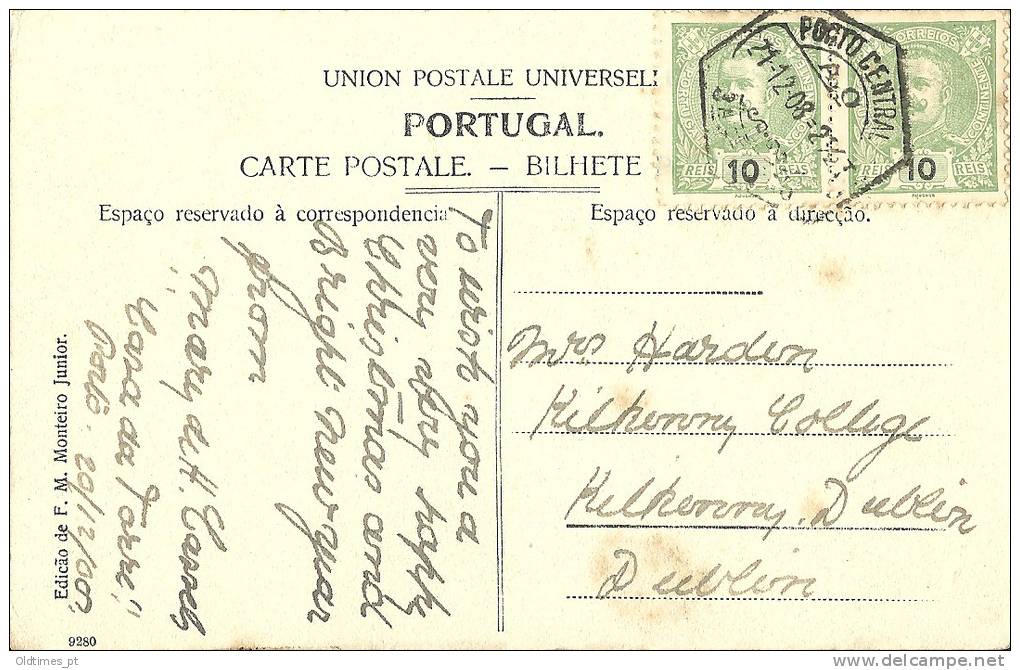 UNION POSTALE UNIVERSELL
PORTUGAL.
CARTE POSTALE. — BILHETE
Espaço reservado à correspondencia
Espaço reservado à direcção.
CORREIOS
PORTO CENTRAL
21-12-08
10
REIS
REIS
10
REIS
To wish you a
very very happy
Christmas and
Bright New year
from
Mary de H. Cassels
"Casa da Torre",
Porto. 20/12/08,
Mrs Harden
Kilkenny College
Kilkenny, Dublin
Dublin
Edicão de F. M. Monteiro Junior.
9280
Oldtimes_pt
www.delcampe.net